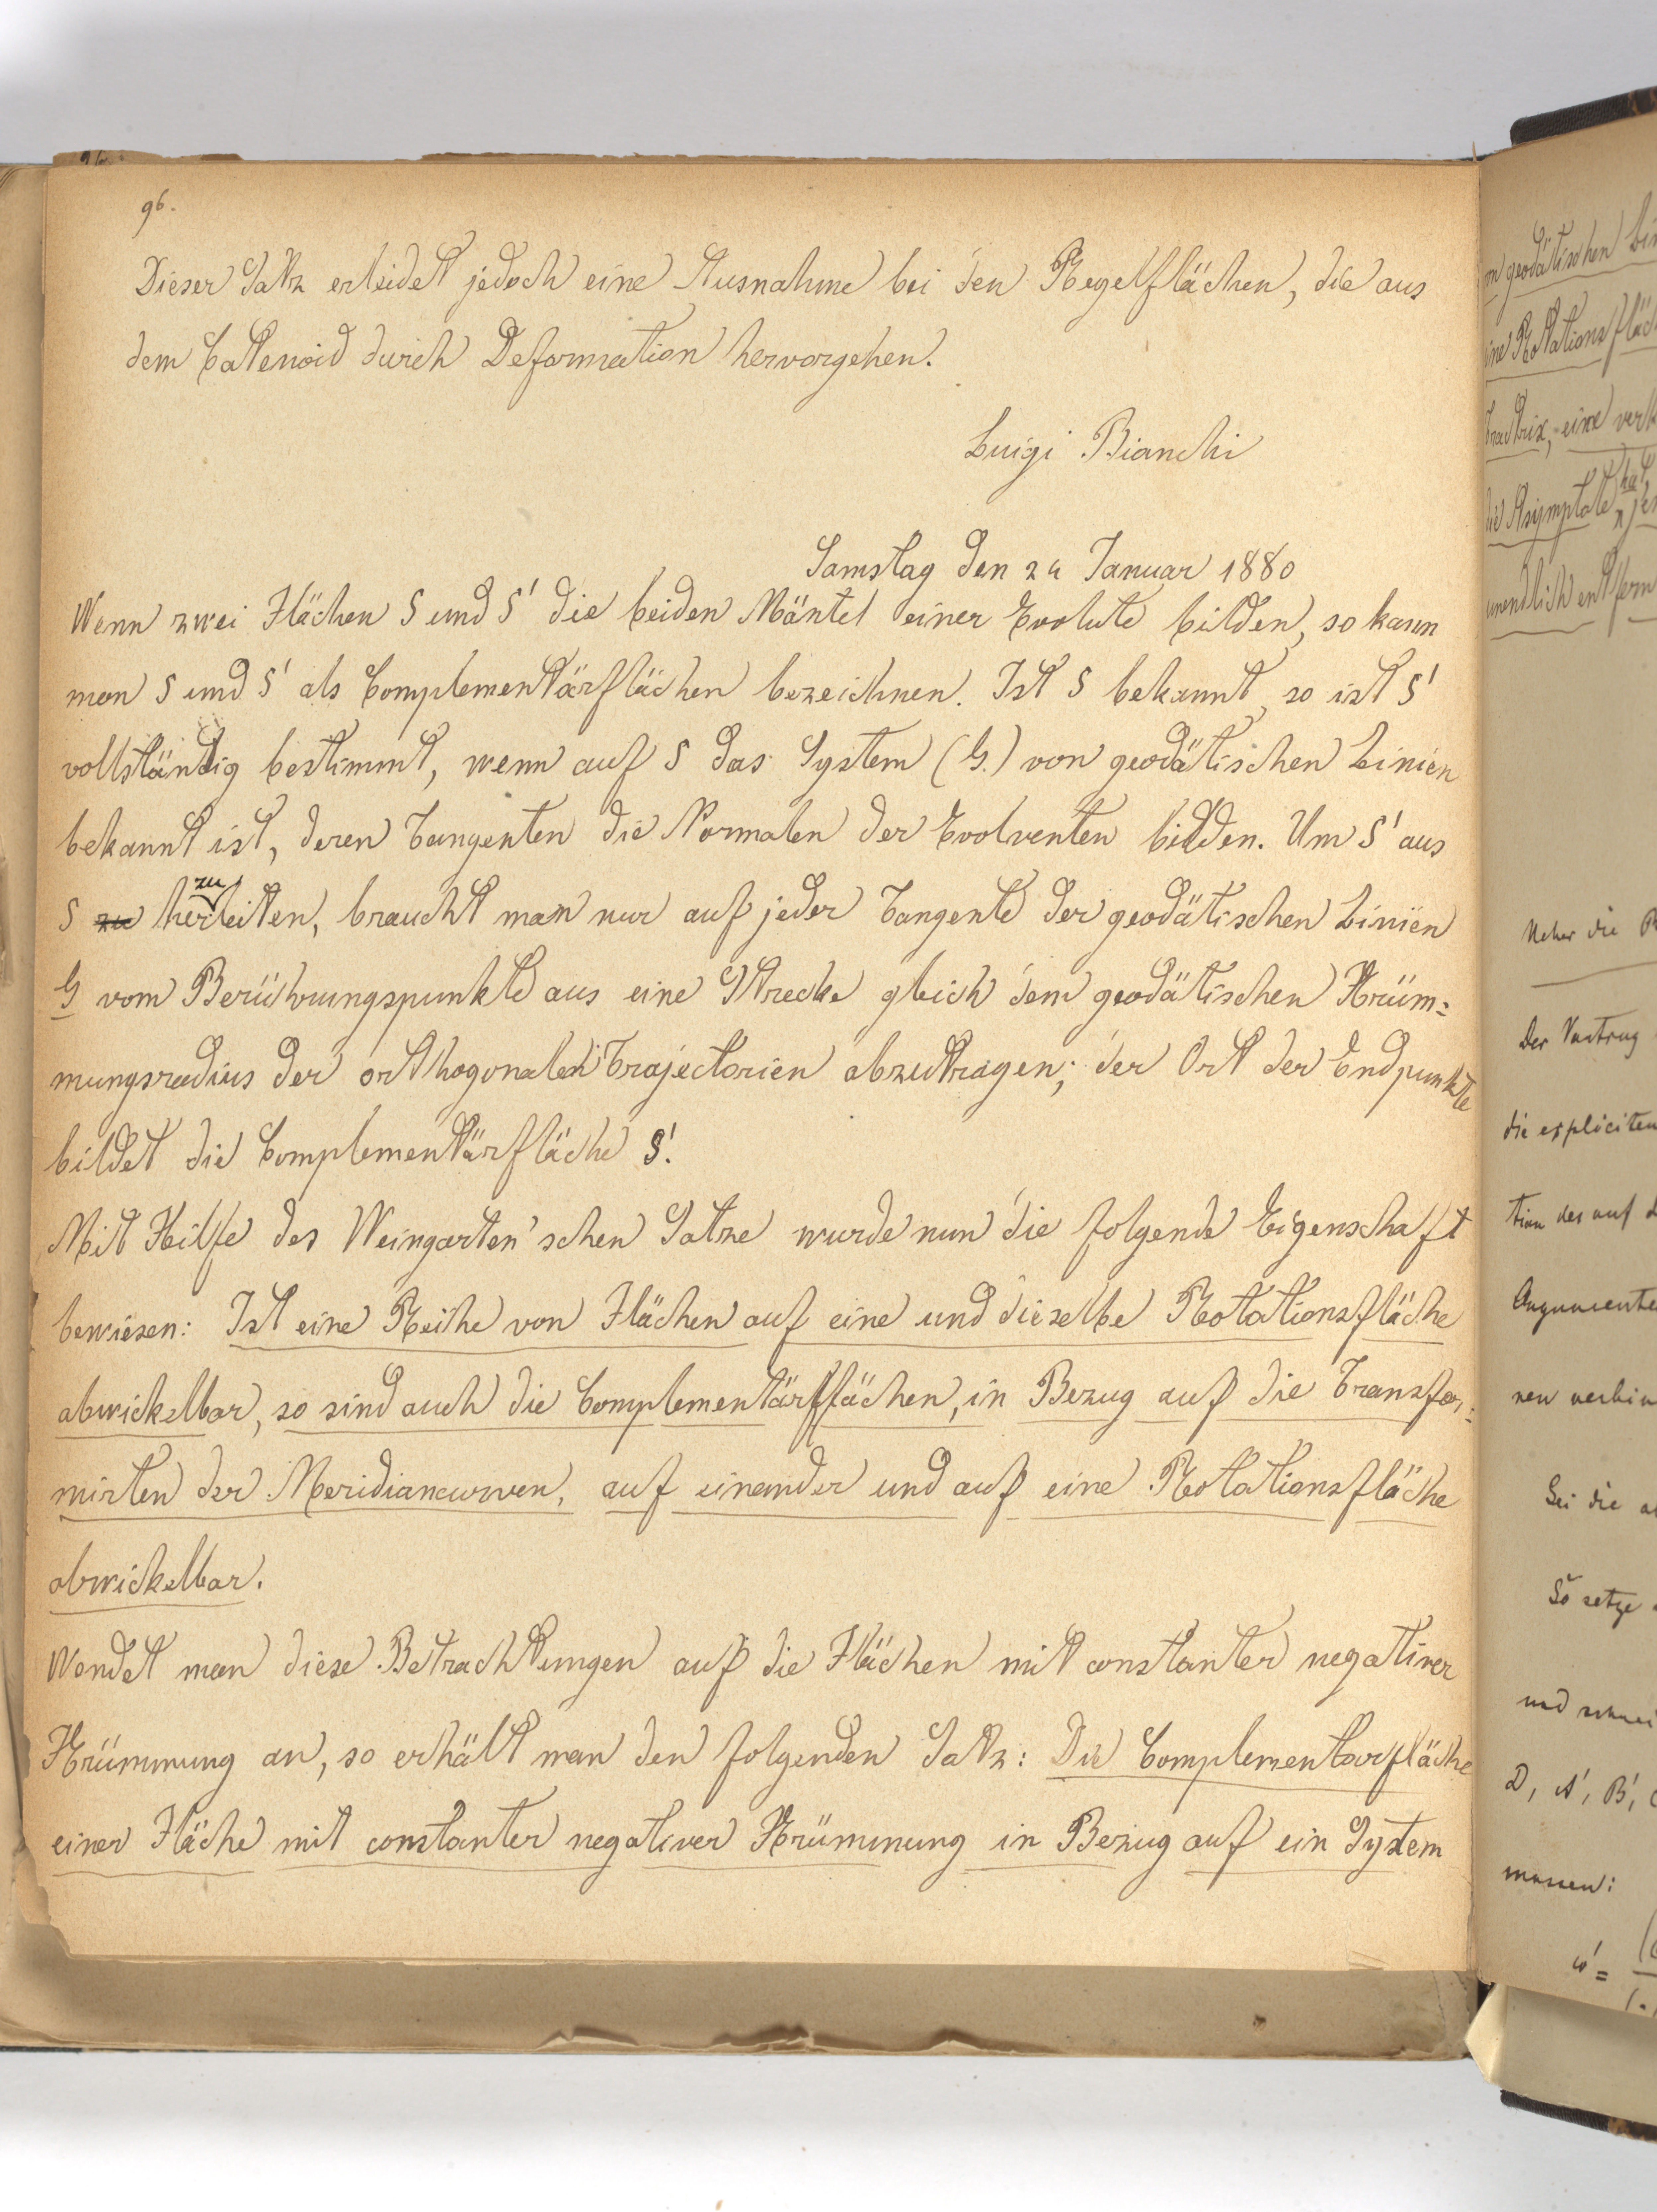 96.
Dieser Satz erleidet jedoch eine Ausnahme bei den Regelflächen, die aus
dem Catenoid durch Deformation hervorgehen.
Luigi Bianchi
Samstag den 24 Januar 1880
Wenn zwei Flächen S und S' die beiden Mäntel einer Evolute bilden, so kann
man S und S' als Complementärflächen bezeichnen. Ist S bekannt, so ist S'
vollständig bestimmt, wenn auf S das System (G.) von geodätischen Linien
bekannt ist, deren Tangenten die Normalen der Evolventen bilden. Um S' aus
S herzuleiten, braucht man nur auf jeder Tangente der geodätischen Linien
G vom Berührungspunkte aus eine Strecke gleich dem geodätischen Krüm=
mungsradius der orthogonalen Trajectorien abzutragen; der Ort der Endpunkte
bildet die Complementärfläche S'.
Mit Hilfe des Weingarten'schen Satze wurde nun die folgende Eigenschaft
bewiesen: Ist eine Reihe von Flächen auf eine und dieselbe Rotationsfläche
abwickelbar, so sind auch die Complementärflächen, in Bezug auf die Transfor=
mirten der Meridiancurven, auf einander und auf eine Rotationsfläche
abwickelbar.
Wendet man diese Betrachtungen auf die Flächen mit constanter negativer
Krümmung an, so erhält man den folgenden Satz: Die Complementarfläche
einer Fläche mit constanter negativer Krümmung in Bezug auf ein System
geodätischen
eine Rotations
eine
die Asymptote hat
unendlich entfern
Ueber die
Der Vortrag
die expliciten
tion der auf
Argumente
Sei die
So setze
und
D, A', B',
massen: